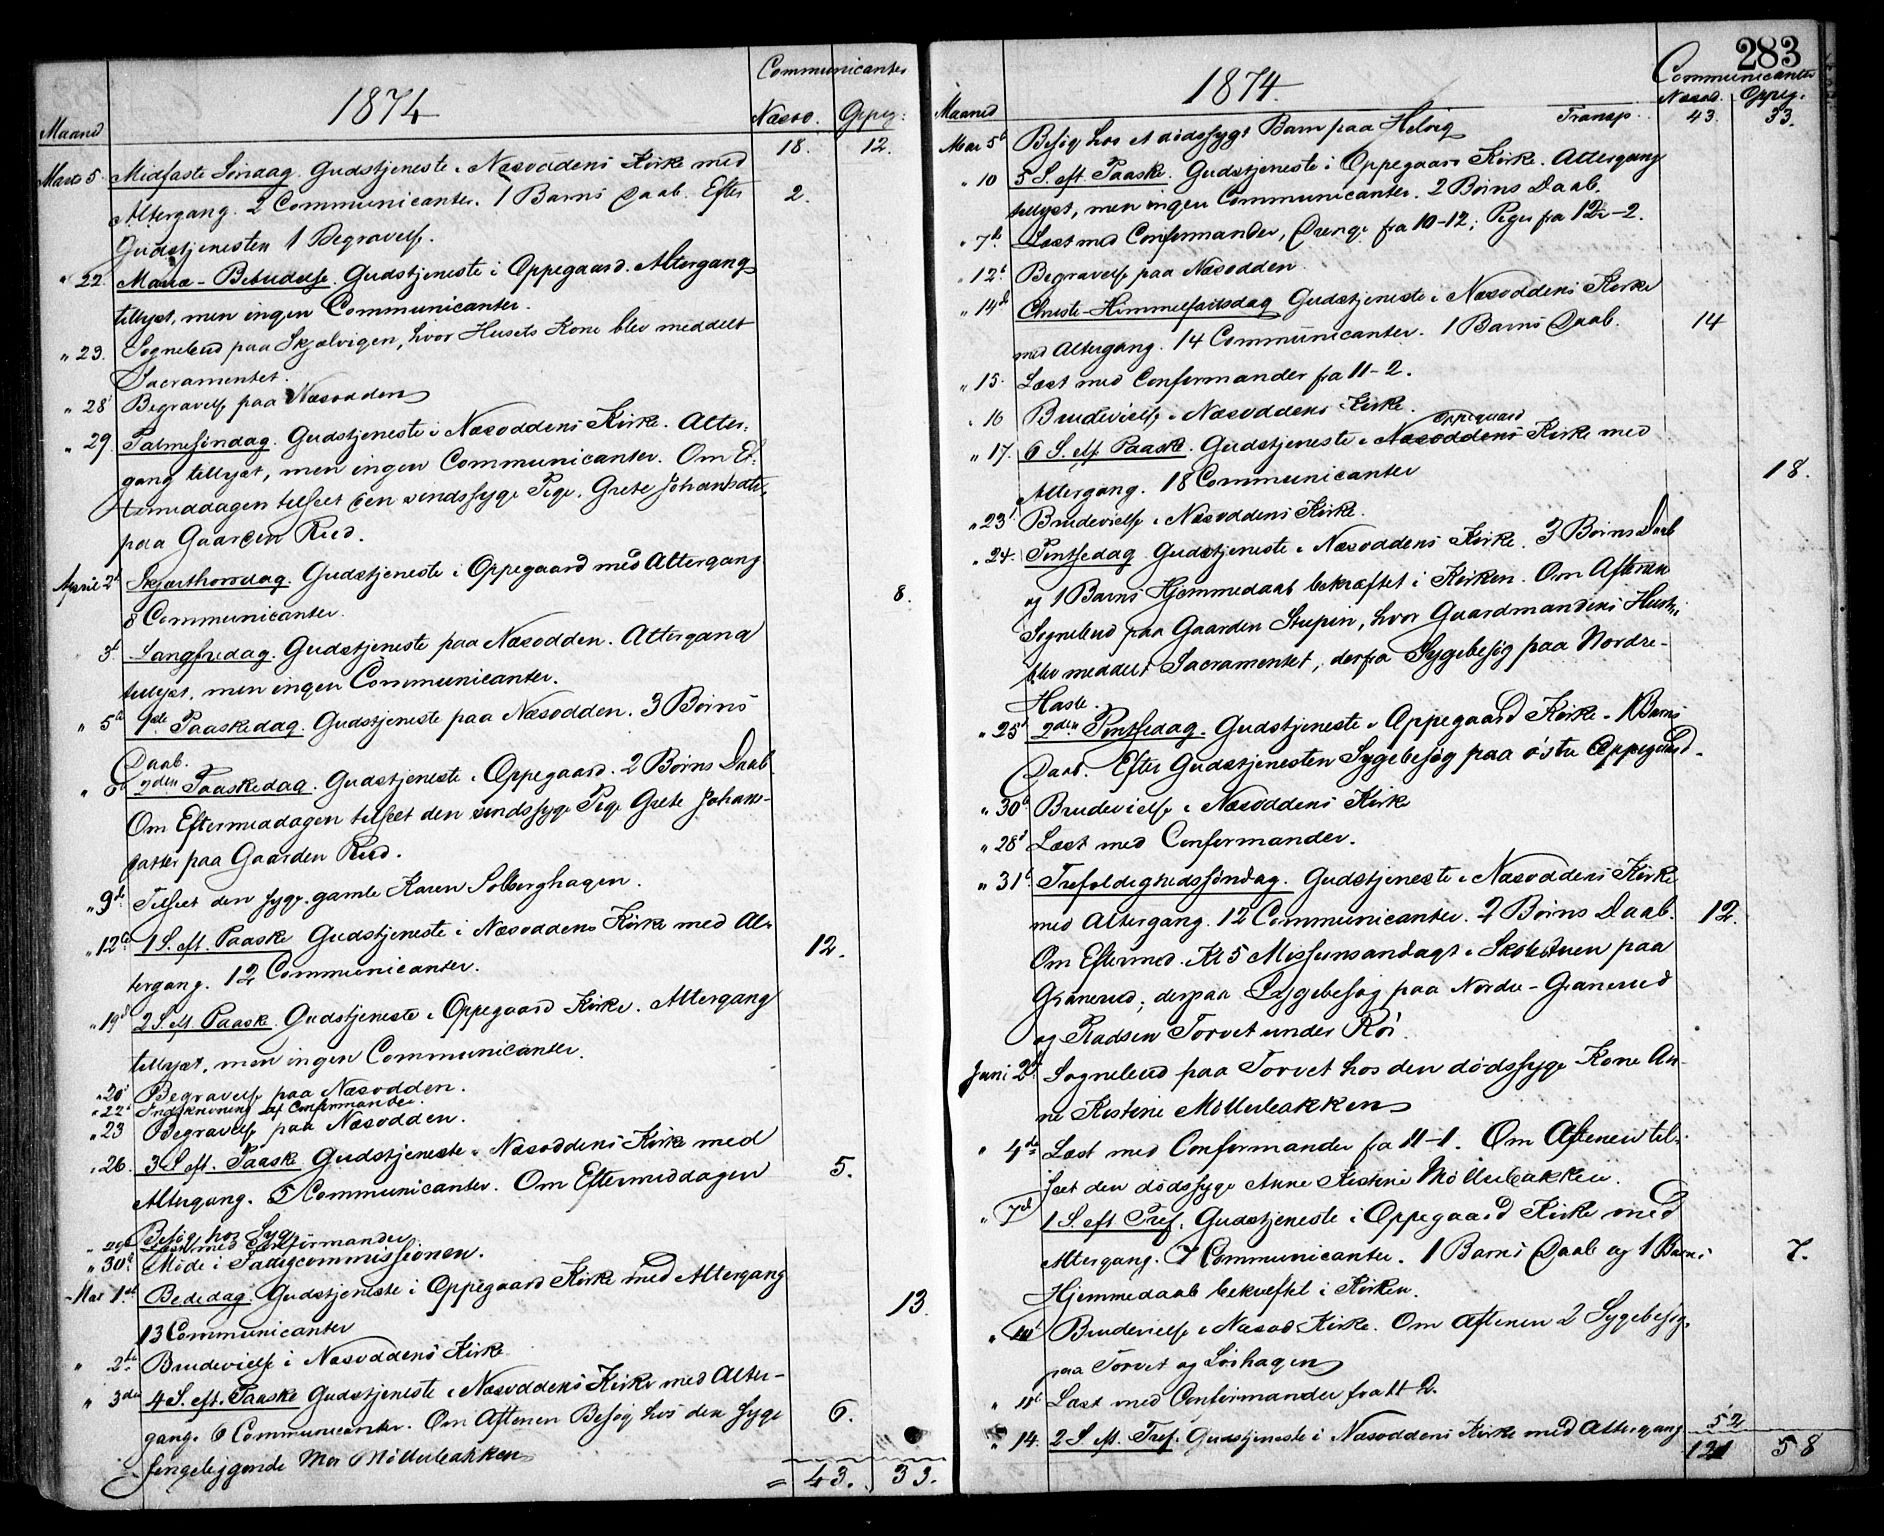 1874
Communicanter
Maaned
Næsod. Oppeg:
18. 12.
Marts 5. Midfaste Søndag. Gudstjeneste i Næsoddens Kirke med
Altergang. 2 Communicanter. 1 Barns Daab. Efter 2.
Gudstjenesten 1 Begravelse.
" 22. Mariæ-Bebudelse. Gudstjeneste i Oppegaard. Altergang
tillyst, men ingen Communicanter.
" 23. Sognebud paa Skjælvigen, hvor Husets Kone blev meddelt
Sacramentet.
" 28 Begravelse paa Næsodden
" 29. Palmesøndag. Gudstjeneste i Næsoddens Kirke. Alter-
gang tillyst, men ingen Communicanter. Om Ef-
termiddagen tilseet den sindssyge Pige, Grete Johansdtr.
paa Gaarden Rud.
April 2d Skjærthorsdag. Gudstjeneste i Oppegaard med Altergang
8 Communicanter. 8.
3d Langfredag. Gudstjeneste paa Næsodden. Altergang
tillyst, men ingen Communicanter.
" 5d 1ste Paaskedag. Gudstjeneste paa Næsodden. 3 Børns
Daab.
" 6d 2den Paaskedag. Gudstjeneste i Oppegaard. 2 Børns Daab.
Om Eftermiddagen tilseet den sindssyge Pige Grete Johans-
datter paa Gaarden Rud.
" 9de Tilseet den syge, gamle Karen Solberghagen.
" 12d 1 S. eft. Paaske Gudstjeneste i Næsoddens Kirke med Al-
tergang. 12 Communicanter. 12.
" 19d 2 S. eft. Paaske. Gudstjeneste i Oppegaard Kirke. Altergang
tillyst, men ingen Communicanter.
" 20 Begravelse paa Næsodden.
" 22d Indskrivning af Confirmander.
" 23 Begravelse paa Næsodden.
" 26. 3 S. eft. Paaske Gudstjeneste i Næsoddens Kirke med
Altergang. 5 Communicanter. Om Eftermiddagen 5.
Besøg hos Syg.
" 29d Læst med Confirmander
" 30d Møde i Fattigcommissionen.
Mai 1st Bededag. Gudstjeneste i Oppegaard Kirke med Altergang
13 Communicanter 13.
" 2de Brudevielse i Næsoddens Kirke
" 3die 4 S. eft. Paaske Gudstjeneste i Næsoddens Kirke med Alter-
gang. 6 Communicanter. Om Aftenen Besøg hos den syge 6.
sengeliggende Møllerbakken
= 43. 33.
283
1874.
Communicanter
Maaned Transp. Næsod. Oppeg.
43. 33.
Mai 5d Besøg hos et dødssygt Barn paa Helvig
" 10 5 S. eft. Paaske. Gudstjeneste i Oppegaard Kirke. Altergang
tillyst, men ingen Communicanter. 2 Børns Daab.
" 7d. Læst med Confirmander, Drenge fra 10-12; Piger fra 12-2.
" 12d Begravelse paa Næsodden.
" 14d Christi-Himmelfartsdag Gudstjeneste i Næsoddens Kirke
med Altergang. 14 Communicanter. 1 Barns Daab. 14
" 15. Læst med Confirmander fra 11-2.
" 16 Brudevielse i Næsoddens Kirke.
Oppegaard
" 17. 6 S. eft. Paaske. Gudstjeneste i Næsoddens Kirke med
Altergang. 18 Communicanter 18.
" 23d Brudevielse i Næsoddens Kirke.
" 24. Pintsedag Gudstjeneste i Næsoddens Kirke. 3 Børns Daab
og 1 Barns Hjemmedaab bekræftet i Kirken. Om Aftenen
Sognebud paa Gaarden Stupin, hvor Gaardmandens Hustru
blev meddelt Sacramentet, derfra Sygebesøg paa Nordre-
Hasle.
" 25d 2den Pintsedag. Gudstjeneste i Oppegaard Kirke - 1 Barns
Daab. Efter Gudstjenesten Sygebesøg paa østre Oppegaard.
" 30d Brudevielse i Næsoddens Kirke
" 28d Læst med Confirmander.
" 31d. Trefoldighedssøndag. Gudstjeneste i Næsoddens Kirke
med Altergang. 12 Communicanter. 2 Børns Daab. 12.
Om Eftermid. Kl 5 Missionsandagt i Skolestuen paa
Granerud; derpaa Sygebesøg paa Nordre-Granerud
og Pladsen Torvet under Røi.
Juni 2d Sognebud paa Torvet hos den dødssyge Kone An-
ne Kistine Møllerbakken
" 4de Læst med Confirmander fra 11-1. Om Aftenen til-
seet den dødssyge Anne Kistine Møllerbakken.
" 7d 1 S. eft. Tref. Gudstjeneste i Oppegaard Kirke med
Altergang. 7 Communicanter. 1 Barns Daab og 1 Barns 7.
Hjemmedaab bekræftet i Kirken.
" 10d Brudevielse i Næsod. Kirke. Om Aftenen 2 Sygebesøg,
paa Torvet og Løshagen
" 11d Læst med Confirmander fra 11-2.
" 14. 2 S. eft. Tref. Gudstjeneste i Næsoddens Kirke med Altergang 52
121 58